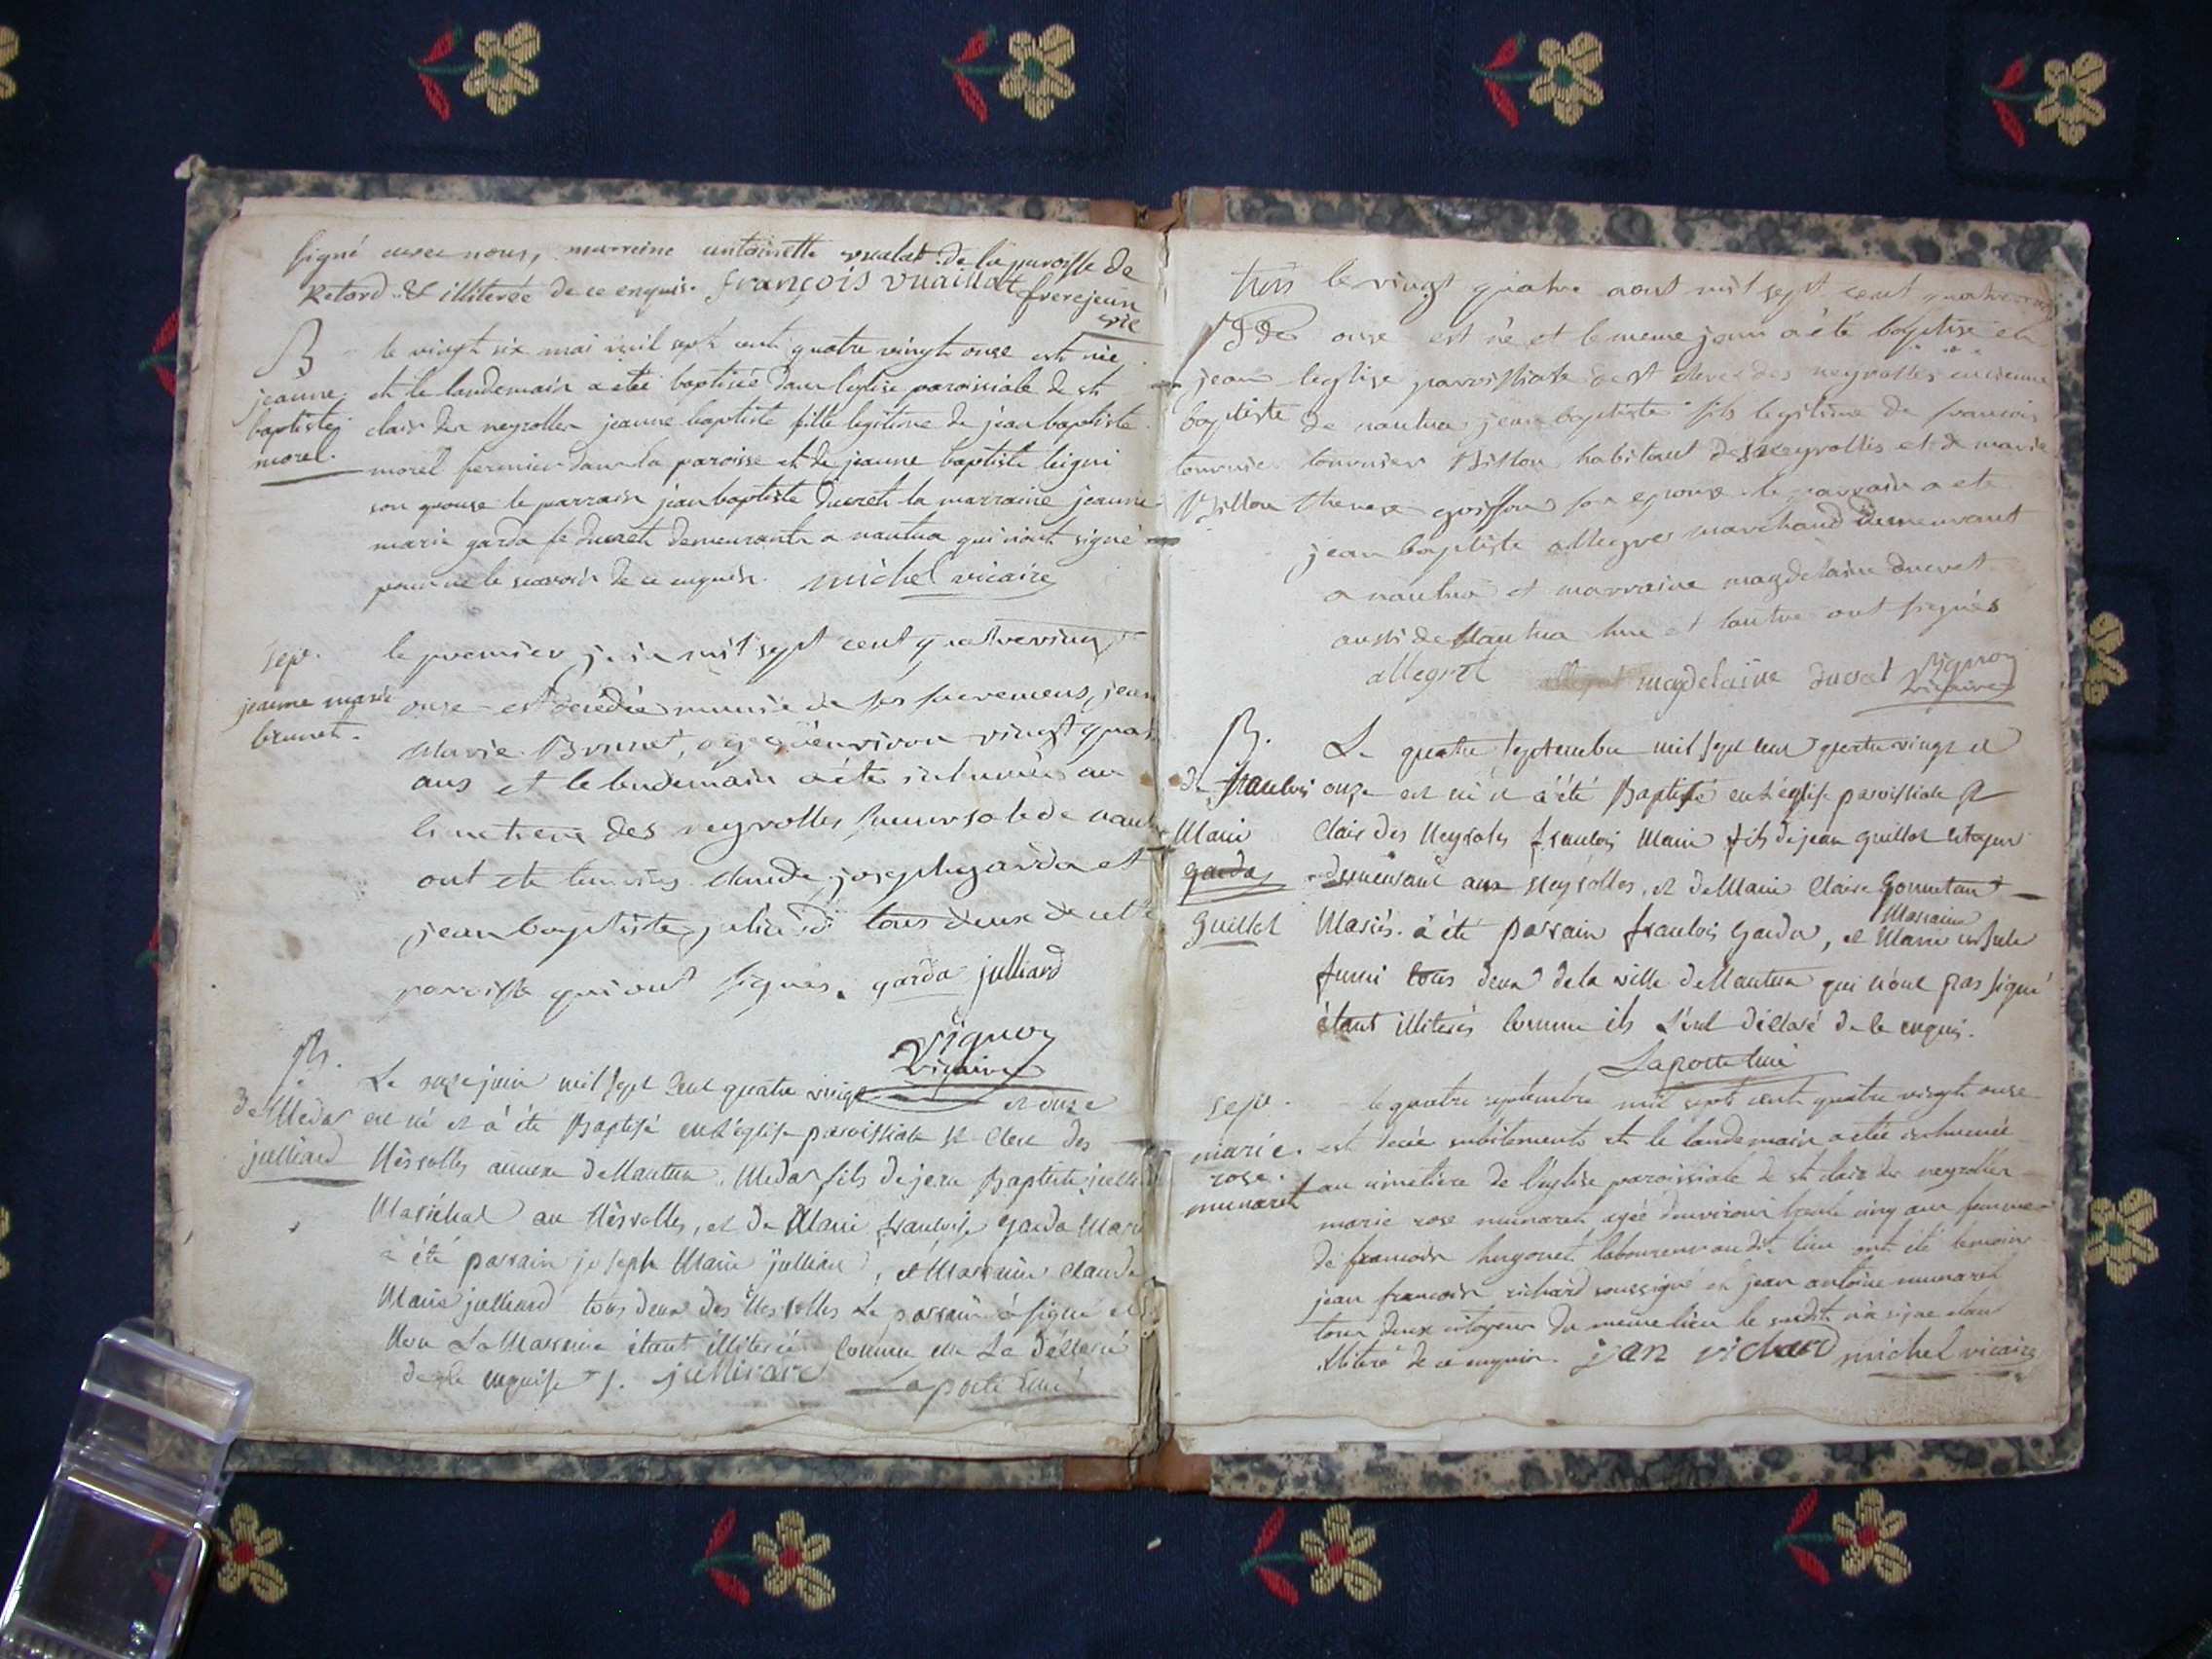 signé avec nous, marreine antoinette vualat de la paroisse de
Retord & illiterée de ce enquise françois vuaillat frerejean
vic
B le vingt six mai mil sept cent quatre vingt onze est née
jeanne et le landemain a eté baptisée dans l'eglise paroissiale de st
baptiste clair des neyrolles jeanne baptiste fille legitime de jean baptiste
morel. morel fermier dans la paroisse et de jeanne baptiste
son epouse le parrain jean baptiste ducret la marraine jeanne
marie garda fe ducret demeurants a nantua qui n'ont signé
pour ne le scavoir de ce enquis. michel vicaire
sep. le premier juin mil sept cent quatrevingt
jeanne marie onze est décédée munie de ses sacremens, jeane
brunet. Marie Brunet, agée d'environ vingt quatre
ans et le lendemain a été inhumée au
cimetiere des neyrolles succursale de nantua
ont été temoins claude joseph garda et
jean baptiste juliard tous deux de cette
paroisse qui ont signés. garda julliard
Vignon
Vicaire
B. Le onze juin mil sept cent quatre vingt et onze
de Medar est né et à été Baptisé en L'église paroissiale st Clere des
julliard Neÿrolles annexe de Nantua. Medar fils de jean Baptiste julliard
Maréchal au Neÿrolles, et de Marie françoise garda Mariés
à été parrain joseph Marie julliard, et Marraine claude
Marie julliard tous deux des Neÿrolles Le parrain à signé et
Non La Marraine étant illiterée comme elle La déclaré
de ce enquise j. julliard Laporte curé
trois le vingt quatre aout mil sept cent quatrevingt
B de onze est né et le meme jour a été baptisé en
jean leglise parroissiale de st clerc des neyrolles annexe
baptiste de nantua jean baptiste fils legitime de francois
tournier tournier Billon habitant des neyrolles et de marie
Billon therese goiffon son epouse le parrain a eté
jean baptiste allegret marchand demeurant
a nantua et marraine magdelaine ducret
aussi de Nantua lune et lautre ont signés
allegret magdelaine ducret Vignon
Vicaire
B. Le quatre septembre mil sept cent quatre vingt et
de francois onze est né et a été Baptisé en L'église paroissiale st
Marie Clair des Neyroles francois Marie fils de jean guillot citoyen
garda demeurant aux Neyrolles, et de Marie Claire Gonnetant
guillot Mariés. à été parrain francois garda, et Marraine Marie ursule
tous deux de la ville de Nantua qui n'ont pas signé
étant illiterés comme ils L'ont déclaré de ce enquis.
Laporte curé
sep. le quatre septembre mil sept cent quatre vingt onze
marie est decée subitement et le landemain a eté inhumée
rose au cimetiere de l'eglise paroissiale de st clair des neyrolles
munaret marie rose munaret agée d'environ trente cinq ans femme
de francois hugonet laboureur audit lieu ont été temoins
jean francois richard soussigné et jean antoine munaret
tous deux citoyens du meme lieu le susdit n'a signé etant
illiteré de ce enquis. jan richard michel vicaire